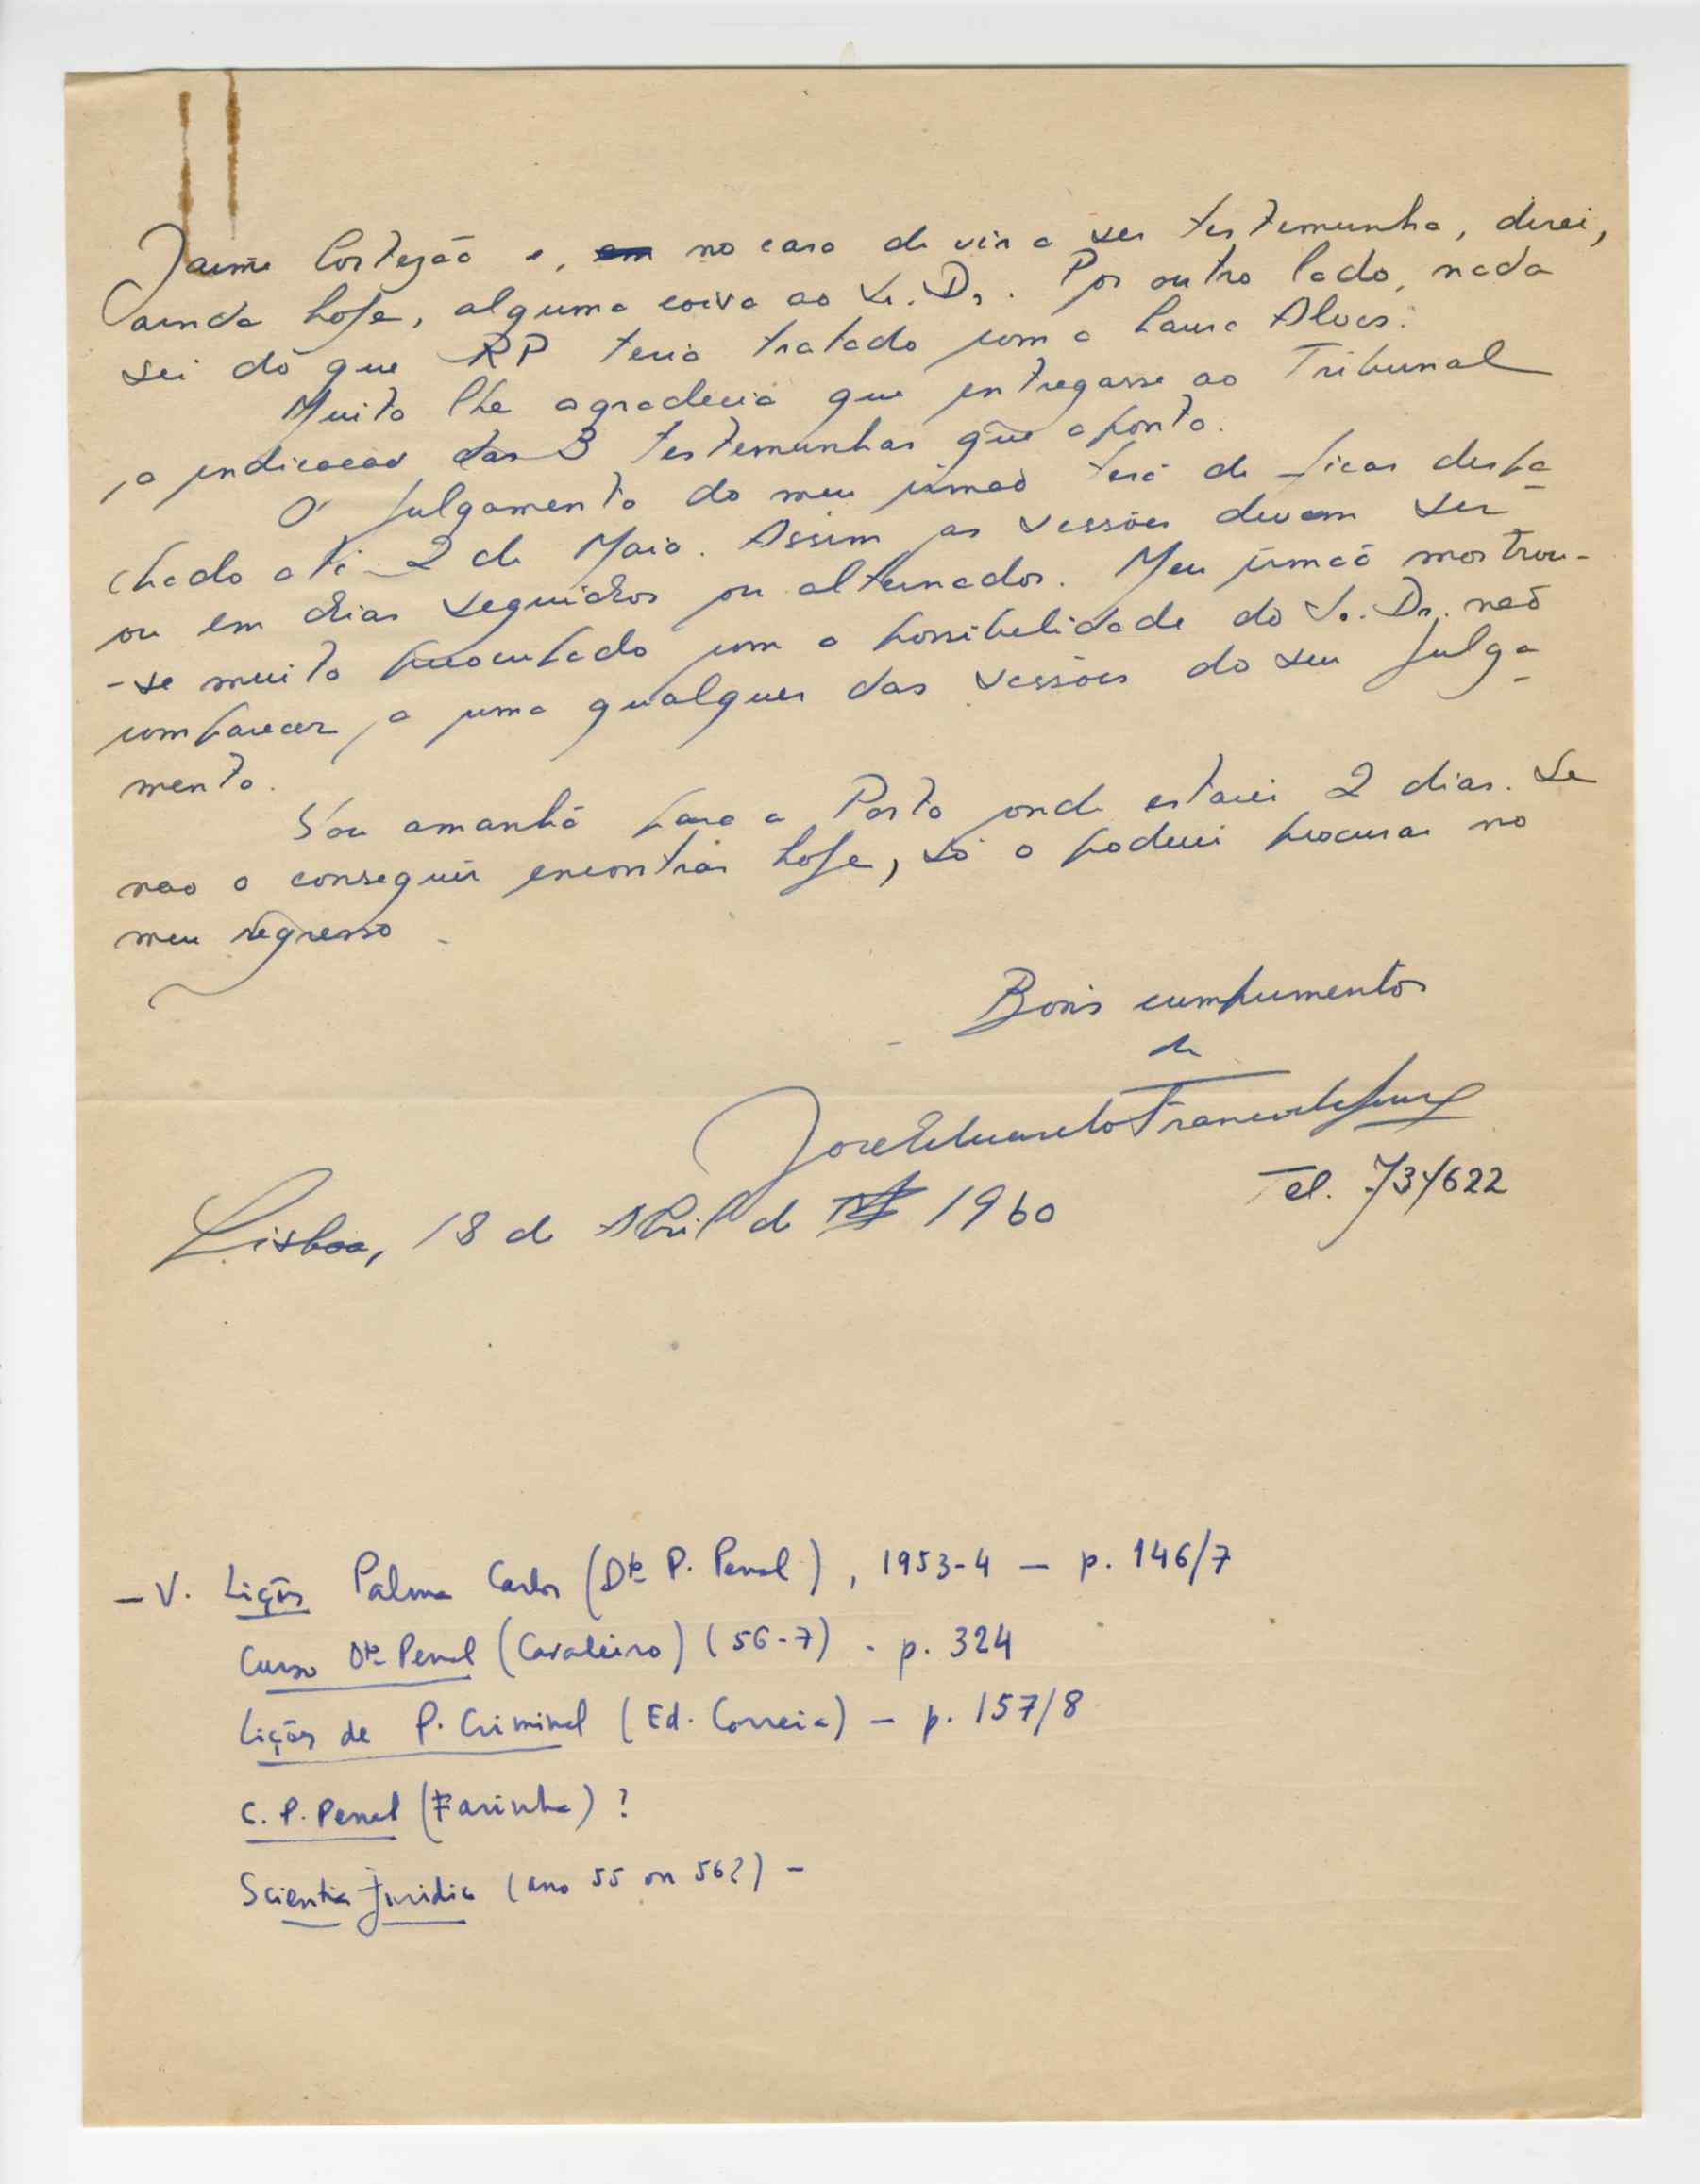 Jaime Cortezão e, no caso de vir a ser testemunha, direi,
ainda hoje, alguma coisa ao Sr. Dr. Por outro lado, nada
sei do que RP teria tratado com a Laura Alves.
Muito lhe agradecia que entregasse ao Tribunal
a indicação das 3 testemunhas que aponto.
O julgamento do meu irmão terá de ficar despa-
chado até 2 de Maio. Assim as sessões devem ser
ou em dias seguidos ou alternados. Meu irmão mostrou-
-se muito preocupado com a possibelidade do Sr. Dr. não
comparecer a uma qualquer das sessões do seu julga-
mento.
Vou amanhã para o Porto onde estarei 2 dias. Se
nao o conseguir encontrar hoje, só o poderei procurar no
meu regresso.
Bons cumprimentos
de
José Eduardo
Tel. 731622
Lisboa, 18 de Abril de 1960
- V. Lições Palma Carlos (Dto P. Penal), 1953-4 - p. 146/7
Curso Dto Penal (Cavaleiro) (56-7) - p. 324
Lições de P. Criminal (Ed. Correia) - p. 157/8
C. P. Penal (Farinha) ?
Scientia Juridica (ano 55 ou 56?) -